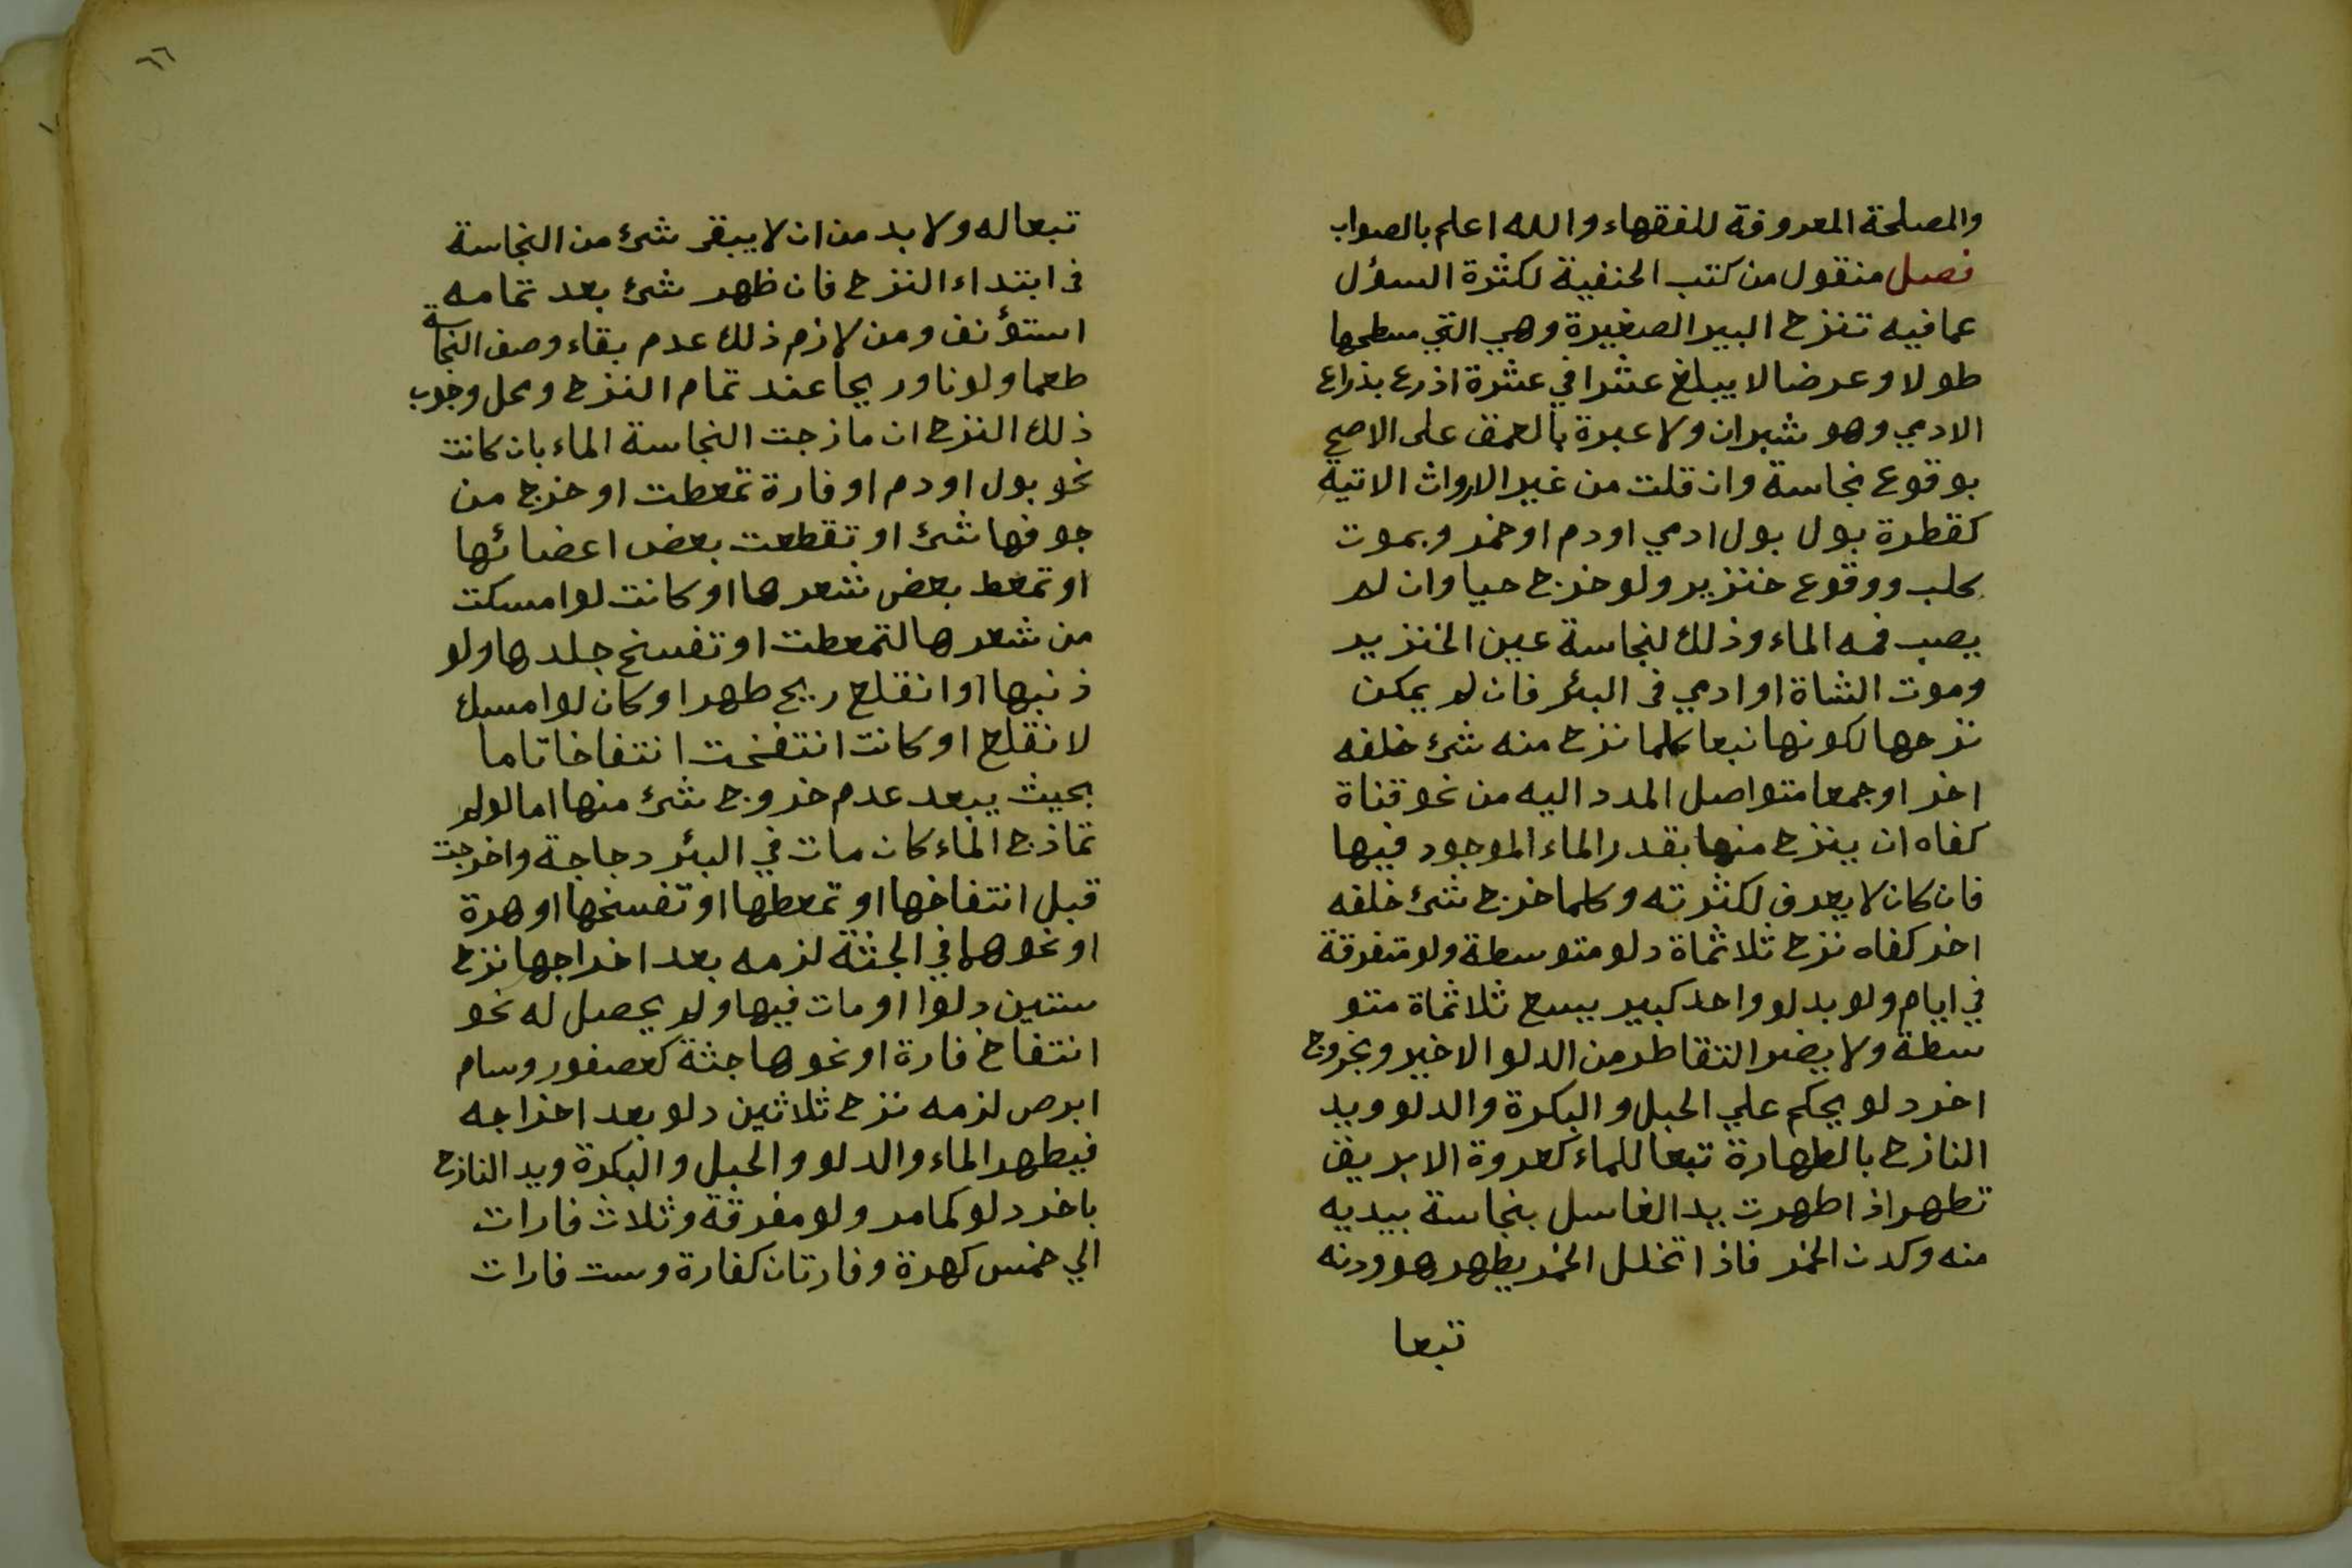 والمصلحة المعروفة للفقهاء والله اعلم بالصواب
فصل منقول من كتب الحنفية لكثرة السؤل
عما فيه تنزح البير الصغيرة وهي التي سطحها
طولا وعرضا لا يبلغ عشرا في عشرة اذرع بذراع
الادمي وهو شبران ولا عبرة بالعمق على الاصح
بوقوع نجاسة وان قلت من غير الارواث الاتية
كقطرة بول بول ادمي اودم اوخمر وبموت
كلب ووقوع خنزير ولو خرج حيا وان لم
يصب فمه الماء وذلك لنجاسة عين الخنزير
وموت الشاة او ادمي في البئر فان لم يمكن
نزحها لكونها نبعا كلما نزح منه شئ خلفه
اخر او جمعا متواصل المدد اليه من نحو قناة
كفاه ان ينزح منها بقدر الماء الموجود فيها
فان كان لا يعرف لكثرته وكلما خرج شئ خلفه
اخر كفاه نزح ثلاثماة دلو متوسطة ولو متفرقة
في ايام ولو بدلو واحد كبير يسع ثلاثماة متو
سطة ولا يضر التقاطر من الدلو الاخير وبخروج
اخر دلو يحكم علي الحبل والبكرة والدلو ويد
النازح بالطهارة تبعا للماء كعروة الابريق
تطهر اذا طهرت يد الغاسل بنجاسة بيديه
منه وكدن الخمر فاذا تخلل الخمر يطهر هو ودنه
تبعا
٦٦
تبعا له ولا بد من ان لا يبقى شئ من النجاسة
في ابتداء النزح فان ظهر شئ بعد تمامه
استؤنف ومن لازم ذلك عدم بقاء وصف النجاسة
طعما ولونا وريحا عند تمام النزح ومحل وجوب
ذلك النزح ان مازجت النجاسة الماء بان كانت
نحو بول اودم او فارة تمعطت او خرج من
جوفها شئ او تقطعت بعض اعضائها
او تمعط بعض شعرها او كانت لو امسكت
من شعرها لتمعطت او تفسخ جلدها ولو
ذنبها او انقلع ريح طهرا وكان لو امسك
لانقلع او كانت انتفخت انتفاخا تاما
بحيث يبعد عدم خروج شئ منها اما لو لم
تمازج الماء كان مات في البئر دجاجة واخرجت
قبل انتفاخها او تمعطها او تفسخها او هرة
او نحوها في الجثة لزمه بعد اخراجها نزح
ستين دلوا او مات فيها ولم يحصل له نحو
انتفاخ فارة او نحوها جثة كعصفور وسام
ابرص لزمه نزح ثلاثين دلو بعد اخراجه
فيطهر الماء والدلو والحبل والبكرة ويد النازح
باخر دلو كما مر ولو مفرقة وثلاث فارات
الي خمس كهرة وفارتان كفارة وست فارات